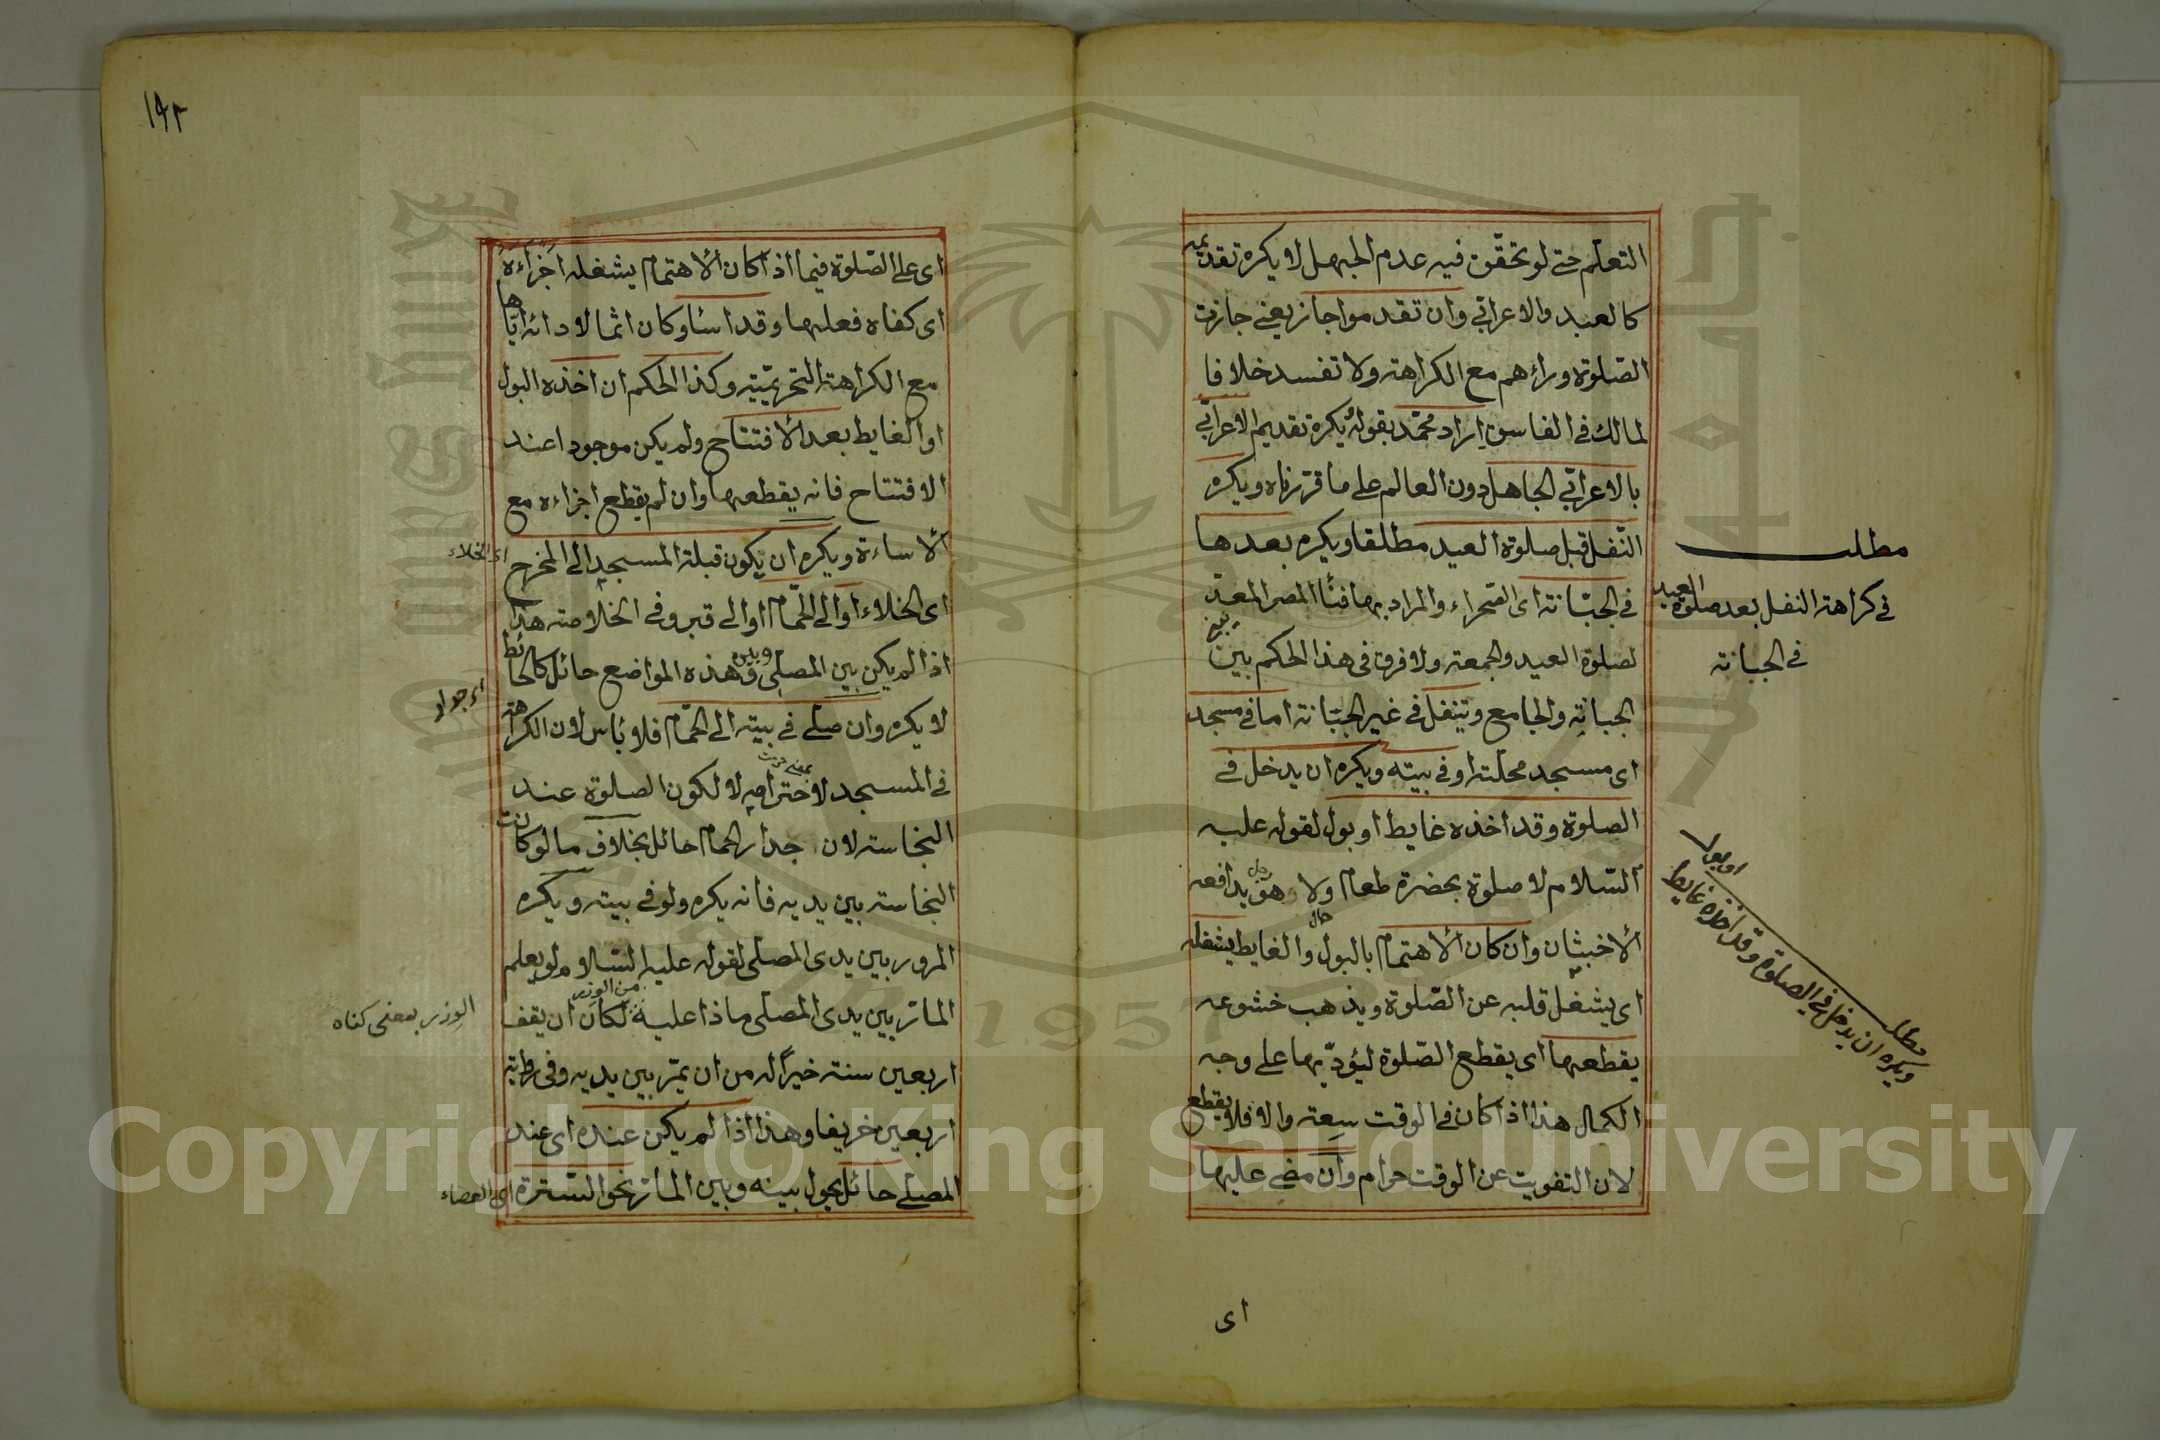 التعلم حتى لو تحقق فيه عدم الجهل لا يكره تقديمه
كالعبد والاعرابي وان تقدموا جاز يعني جازت
الصلوة وراءهم مع الكراهة ولا تفسد خلافا
لمالك في الفاسق اراد محمد بقوله يكره تقديم الاعرابي
بالاعرابي الجاهل دون العالم على ما قررناه ويكره
النفل قبل صلوة العيد مطلقا ويكره بعدها
في الجبانة اى الصحراء والمراد بها فنا المصر المعد
لصلوة العيد والجمعة ولا فرق في هذا الحكم بين
الجبانة والجامع وتنفل في غير الجبانة اما في مسجد
اى مسجد محلته او في بيته ويكره ان يدخل في
الصلوة وقد اخذه غايط او بول لقوله عليه
السلام لا صلوة بحضرة طعام ولا وهو يدافعه
الاخبثان وان كان الاهتمام بالبول والغايط يشغله
اى يشغل قلبه عن الصلوة ويذهب خشوعه
يقطعها اى يقطع الصلوة ليؤديها على وجه
الكمال هذا اذا كان في الوقت سعة والا فلا يقطع
لان التفويت عن الوقت حرام وان مضى عليها
اى
مطلب
في كراهة النفل بعد صلوة العيد
في الجبانة
مطلب
ويكره ان يدخل في الصلوة وقد اخذه غايط
او بول
١٩٢
اى على الصلوة فيما اذا كان الاهتمام يشغله اجزاءه
اى كفاه فعلها وقد اساو كان اثما لادائه اياها
مع الكراهة التحريمية وكذا الحكم ان اخذه البول
او الغايط بعد الافتتاح ولم يكن موجودا عند
الافتتاح فانه يقطعها وان لم يقطع اجزاءه مع
الاساءة ويكره ان يكون قبلة المسجد الى المخرج
اى الخلاء او الى الحمام او الى قبر وفي الخلاصة هذا
اذا لم يكن بين المصلى وبين هذه المواضع حائل كالحائط
لا يكره وان صلى في بيته الى الحمام فلا باس لان الكراهة
في المسجد لاحترامه لا لكون الصلوة عند
النجاسة لان جدار الحمام حائل بخلاف ما لو كانت
النجاسة بين يديه فانه يكره ولو في بيته ويكره
المرور بين يدى المصلى لقوله عليه السلام لو يعلم
المار بين يدى المصلى ماذا عليه من الوزر لكان ان يقف
اربعين سنة خيرا له من ان يمر بين يديه وفي رواية
اربعين خريفا وهذا اذا لم يكن عنده اى عند
المصلى حائل يحول بينه وبين المار نحو السترة
اى الخلاء
اى جدار
الوزر بمعنى كناه
اى العصاء